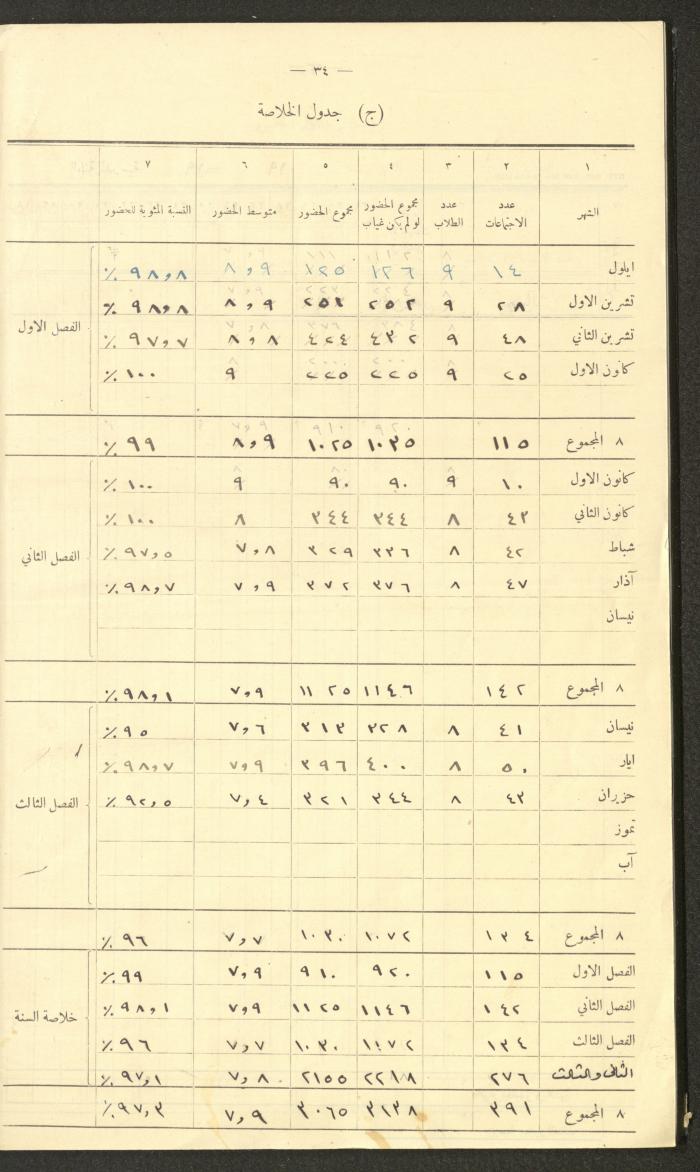 — ٣٤ —
(ج) جدول الخلاصة
١ ٢ ٣ ٤ ٥ ٦ ٧
الشهر عدد الاجتماعات عدد الطلاب مجموع الحضور لو لم يكن غياب مجموع الحضور متوسط الحضور النسبة المئوية للحضور
ايلول ١٤ ٩ ١٢٦ ١٢٥ ٨,٩ ٩٨,٨ ٪
تشرين الاول ٢٨ ٩ ٢٥٢ ٢٥١ ٨,٩ ٩٨,٨ ٪
تشرين الثاني ٤٨ ٩ ٤٣٢ ٤٢٤ ٨,٨ ٩٧,٧ ٪
كانون الاول ٢٥ ٩ ٢٢٥ ٢٢٥ ٩ ١٠٠ ٪
الفصل الاول
٨ المجموع ١١٥ ١٠٣٥ ١٠٢٥ ٨,٩ ٩٩ ٪
كانون الاول ١٠ ٩ ٩٠ ٩٠ ٩ ١٠٠ ٪
كانون الثاني ٤٣ ٨ ٣٤٤ ٣٤٤ ٨ ١٠٠ ٪
شباط ٤٢ ٨ ٣٣٦ ٣٢٩ ٧,٨ ٩٧,٥ ٪
الفصل الثاني
آذار ٤٧ ٨ ٣٧٦ ٣٧٢ ٧,٩ ٩٨,٧ ٪
نيسان
٨ المجموع ١٤٢ ١١٤٦ ١١٢٥ ٧,٩ ٩٨,١ ٪
نيسان ٤١ ٨ ٣٢٨ ٣١٣ ٧,٦ ٩٥ ٪
ايار ٥٠ ٨ ٤٠٠ ٣٩٦ ٧,٩ ٩٨,٧ ٪
حزيران ٤٣ ٨ ٣٤٤ ٣٢١ ٧,٤ ٩٢,٥ ٪
الفصل الثالث
تموز
آب
٨ المجموع ١٣٤ ١٠٧٢ ١٠٣٠ ٧,٧ ٩٦ ٪
الفصل الاول ١١٥ ٩٢٠ ٩١٠ ٧,٩ ٩٩ ٪
الفصل الثاني ١٤٢ ١١٤٦ ١١٢٥ ٧,٩ ٩٨,١ ٪
خلاصة السنة
الفصل الثالث ١٣٤ ١٠٧٢ ١٠٣٠ ٧,٧ ٩٦ ٪
الثاني والثالث ٢٧٦ ٢٢١٨ ٢١٥٥ ٧,٨ ٩٧,١ ٪
٨ المجموع ٣٩١ ٣١٣٨ ٣٠٦٥ ٧,٩ ٩٧,٣ ٪